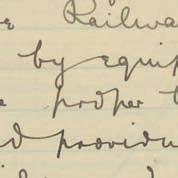 Railwa
by equip
proper t
d providi